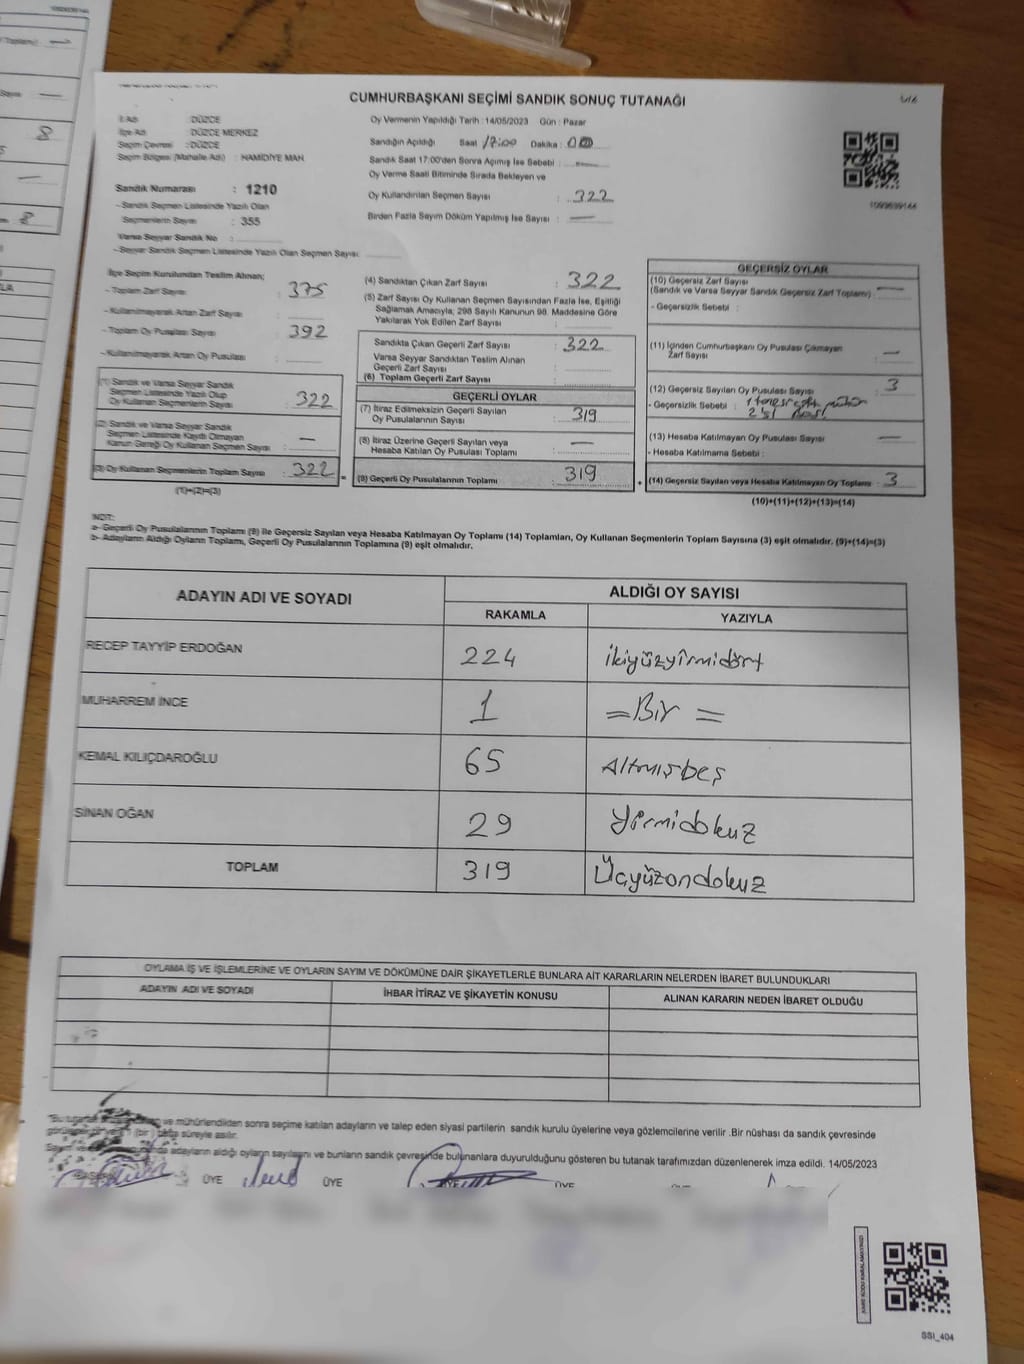 CUMHURBAŞKANI SEÇİMİ SANDIK SONUÇ TUTANAĞI
İl Adı : DÜZCE
İlçe Adı : DÜZCE MERKEZ
Seçim Çevresi : DÜZCE
Seçim Bölgesi (Mahalle Adı) : HAMİDİYE MAH.
Sandık Numarası : 1210
- Sandık Seçmen Listesinde Yazılı Olan
Seçmenlerin Sayısı : 355
Varsa Seyyar Sandık No :
- Seyyar Sandık Seçmen Listesinde Yazılı Olan Seçmen Sayısı:
Oy Vermenin Yapıldığı Tarih : 14/05/2023 Gün : Pazar
Sandığın Açıldığı Saat 17:00 Dakika :
Sandık Saat 17:00'den Sonra Açılmış İse Sebebi :
Oy Verme Saati Bitiminde Sırada Bekleyen ve
Oy Kullandırılan Seçmen Sayısı : 322
Birden Fazla Sayım Döküm Yapılmış İse Sayısı : —
İlçe Seçim Kurulundan Teslim Alınan;
- Toplam Zarf Sayısı : 375
- Kullanılmayarak Artan Zarf Sayısı :
- Toplam Oy Pusulası Sayısı : 392
- Kullanılmayarak Artan Oy Pusulası :
(1) Sandık ve Varsa Seyyar Sandık
Seçmen Listesinde Yazılı Olup
Oy Kullanan Seçmenlerin Sayısı : 322
(2) Sandık ve Varsa Seyyar Sandık
Seçmen Listesinde Kaydı Olmayan
Kanun Gereği Oy Kullanan Seçmen Sayısı : —
(3) Oy Kullanan Seçmenlerin Toplam Sayısı : 322 =
(1)+(2)=(3)
(4) Sandıktan Çıkan Zarf Sayısı : 322
(5) Zarf Sayısı Oy Kullanan Seçmen Sayısından Fazla İse, Eşitliği
Sağlamak Amacıyla; 298 Sayılı Kanunun 98. Maddesine Göre
Yakılarak Yok Edilen Zarf Sayısı :
Sandıkta Çıkan Geçerli Zarf Sayısı : 322
Varsa Seyyar Sandıktan Teslim Alınan
Geçerli Zarf Sayısı :
(6) Toplam Geçerli Zarf Sayısı :
GEÇERLİ OYLAR
(7) İtiraz Edilmeksizin Geçerli Sayılan
Oy Pusulalarının Sayısı : 319
(8) İtiraz Üzerine Geçerli Sayılan veya
Hesaba Katılan Oy Pusulası Toplamı : —
(9) Geçerli Oy Pusulalarının Toplamı : 319 +
GEÇERSİZ OYLAR
(10) Geçersiz Zarf Sayısı
(Sandık ve Varsa Seyyar Sandık Geçersiz Zarf Toplamı) : —
- Geçersizlik Sebebi :
(11) İçinden Cumhurbaşkanı Oy Pusulası Çıkmayan
Zarf Sayısı : —
(12) Geçersiz Sayılan Oy Pusulası Sayısı : 3
- Geçersizlik Sebebi :
(13) Hesaba Katılmayan Oy Pusulası Sayısı : —
- Hesaba Katılmama Sebebi :
(14) Geçersiz Sayılan veya Hesaba Katılmayan Oy Toplamı : 3
(10)+(11)+(12)+(13)=(14)
NOT:
a- Geçerli Oy Pusulalarının Toplamı (9) ile Geçersiz Sayılan veya Hesaba Katılmayan Oy Toplamı (14) Toplamları, Oy Kullanan Seçmenlerin Toplam Sayısına (3) eşit olmalıdır. (9)+(14)=(3)
b- Adayların Aldığı Oyların Toplamı, Geçerli Oy Pusulalarının Toplamına (9) eşit olmalıdır.
ADAYIN ADI VE SOYADI ALDIĞI OY SAYISI
RAKAMLA YAZIYLA
RECEP TAYYİP ERDOĞAN 224 ikiyüzyirmidört
MUHARREM İNCE 1 =Bir =
KEMAL KILIÇDAROĞLU 65 Altmışbeş
SİNAN OĞAN 29 Yirmidokuz
TOPLAM 319 Üçyüzondokuz
OYLAMA İŞ VE İŞLEMLERİNE VE OYLARIN SAYIM VE DÖKÜMÜNE DAİR ŞİKAYETLERLE BUNLARA AİT KARARLARIN NELERDEN İBARET BULUNDUKLARI
ADAYIN ADI VE SOYADI İHBAR İTİRAZ VE ŞİKAYETİN KONUSU ALINAN KARARIN NEDEN İBARET OLDUĞU
ve mühürlendikten sonra seçime katılan adayların ve talep eden siyasi partilerin sandık kurulu üyelerine veya gözlemcilerine verilir .Bir nüshası da sandık çevresinde
(bir) hafta süreyle asılır.
adayların aldığı oyların sayılarını ve bunların sandık çevresinde bulunanlara duyurulduğunu gösteren bu tutanak tarafımızdan düzenlenerek imza edildi. 14/05/2023
ÜYE ÜYE ÜYE ÜYE
SSİ_404